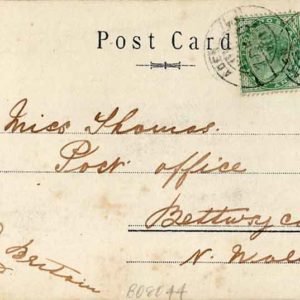 Post Card
ADEN
Miss Thomas.
Post office
Bettwy
N. Wal
Britain
808044